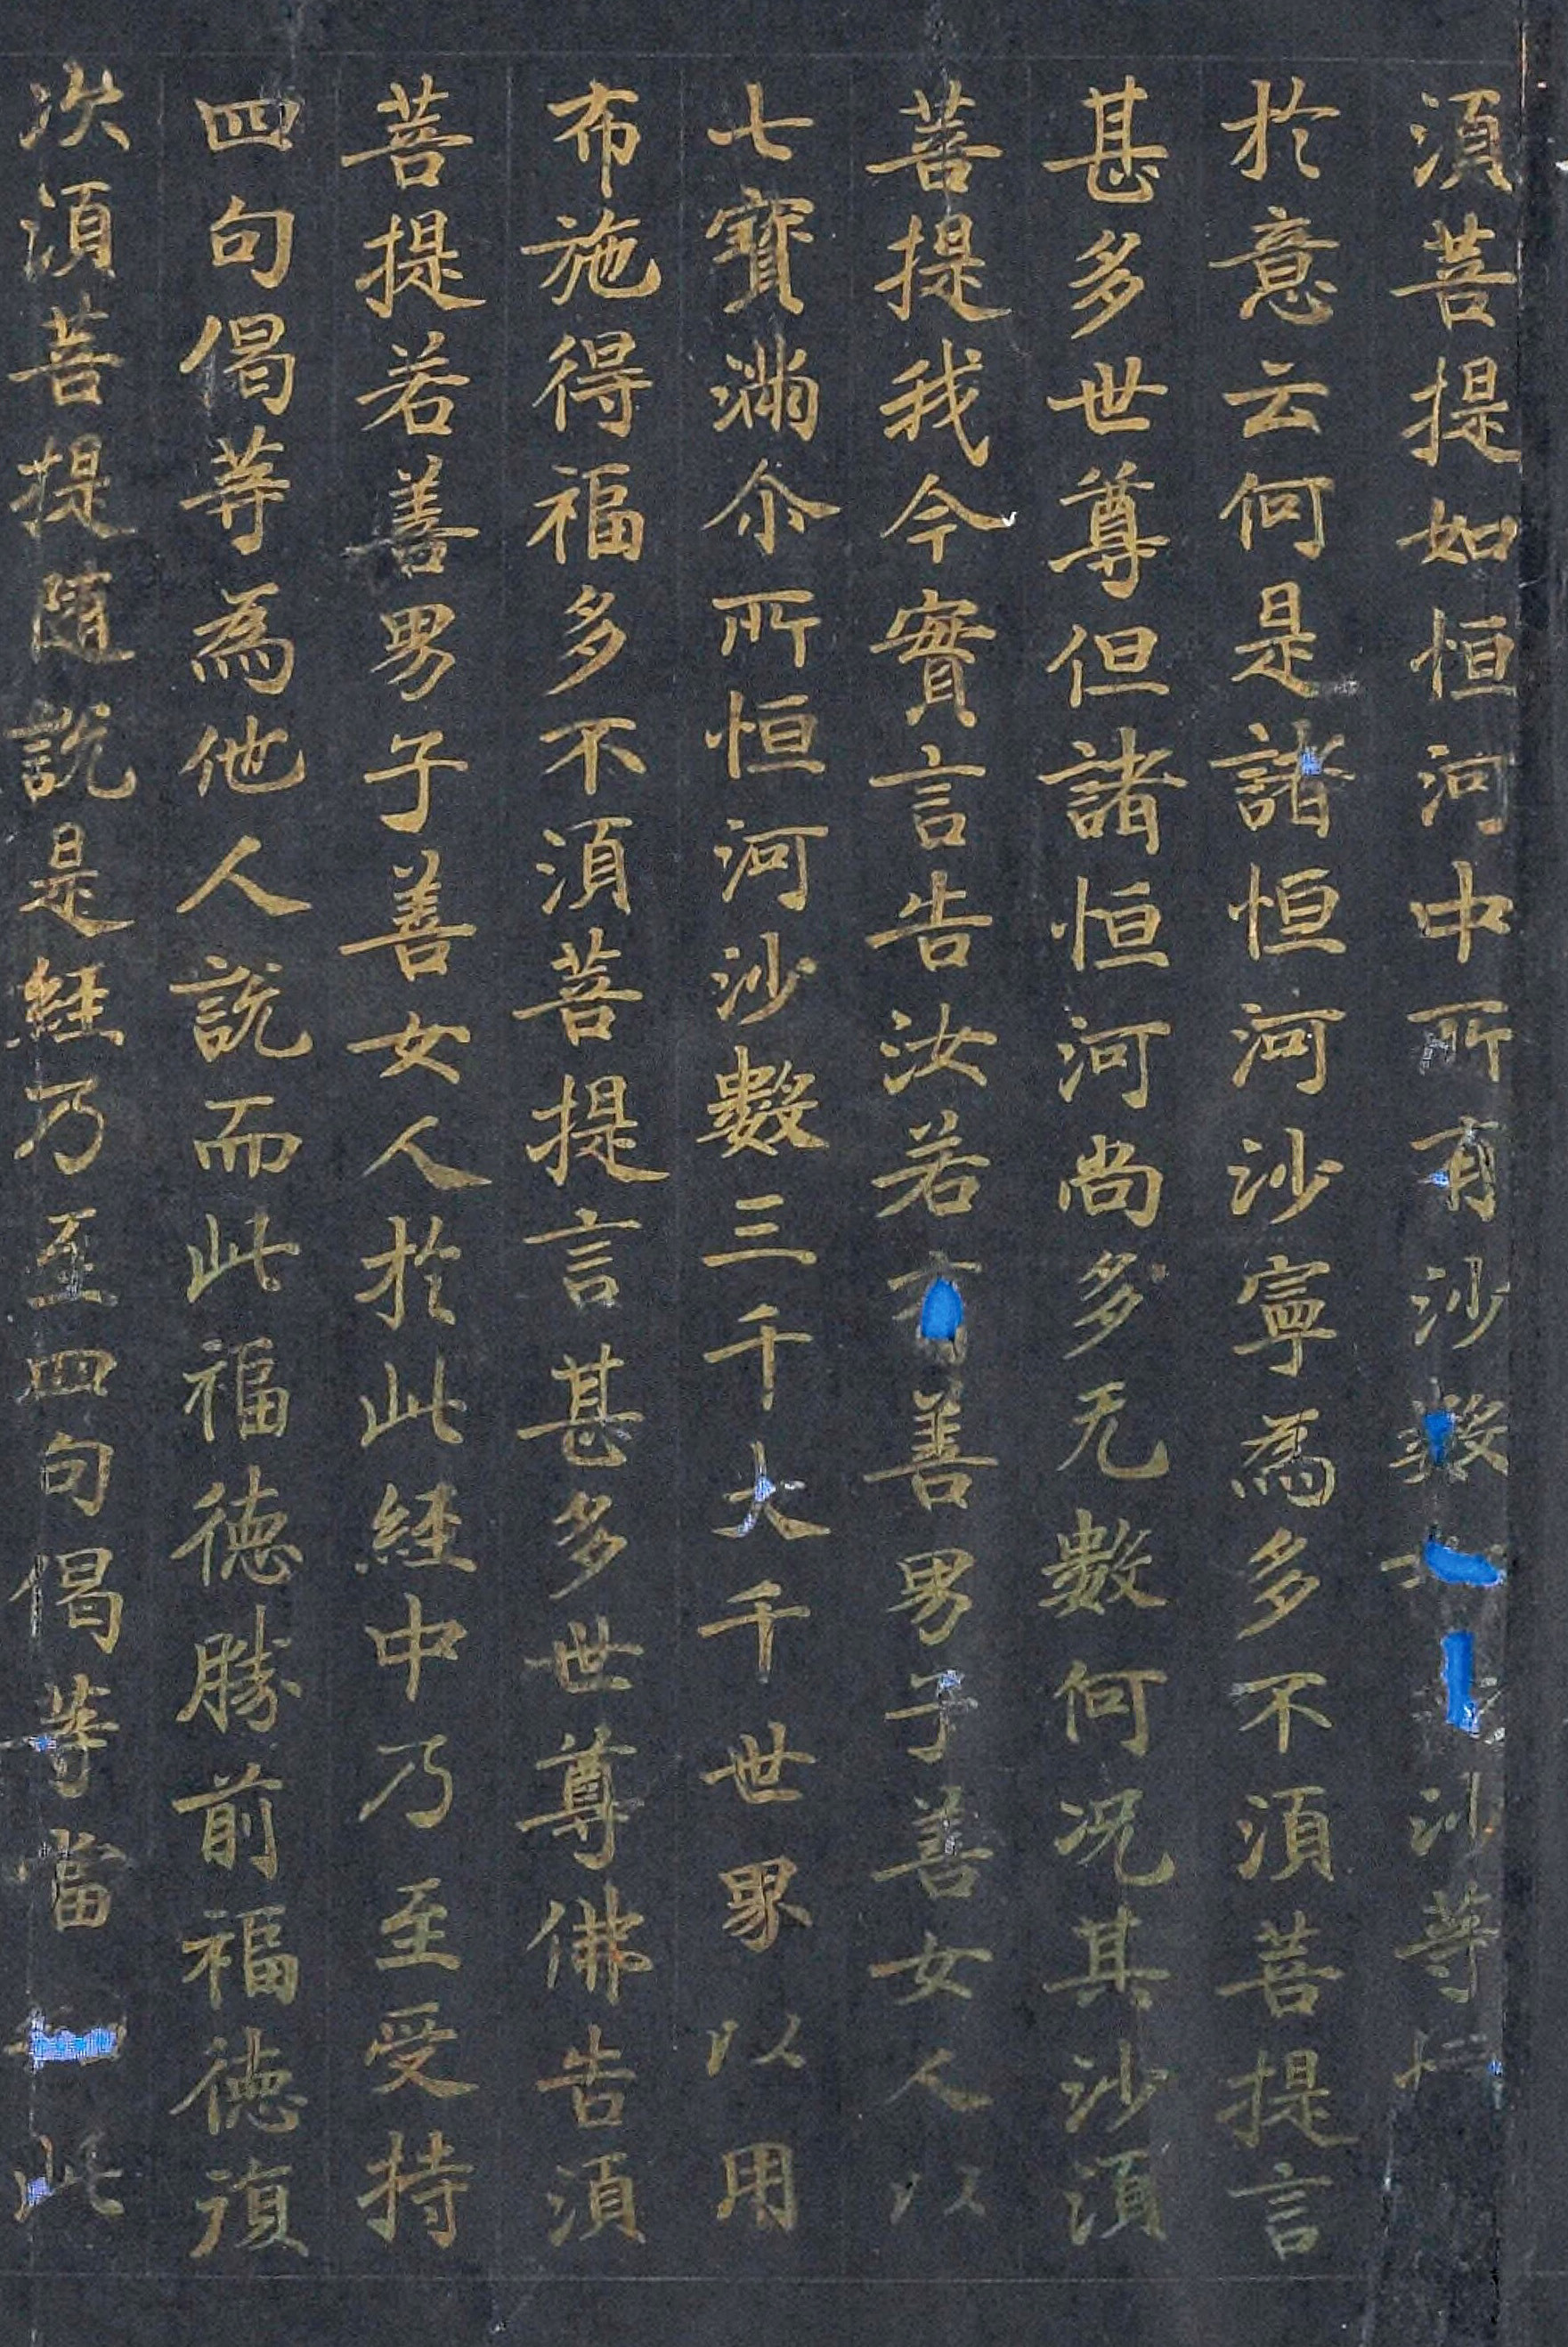 須菩提如恒河中所有沙數沙等恒
於意云何是諸恒河沙寧為多不須菩提言
甚多世尊但諸恒河尚多无數何况其沙須
菩提我今實言告汝若善男子善女人以
七寶滿尒所恒河沙數三千大千世界以用
布施得福多不須菩提言甚多世尊佛告須
菩提若善男子善女人於此經中乃至受持
四句偈等為他人說而此福德勝前福德復
次須菩提隨說是經乃至四句偈等當此